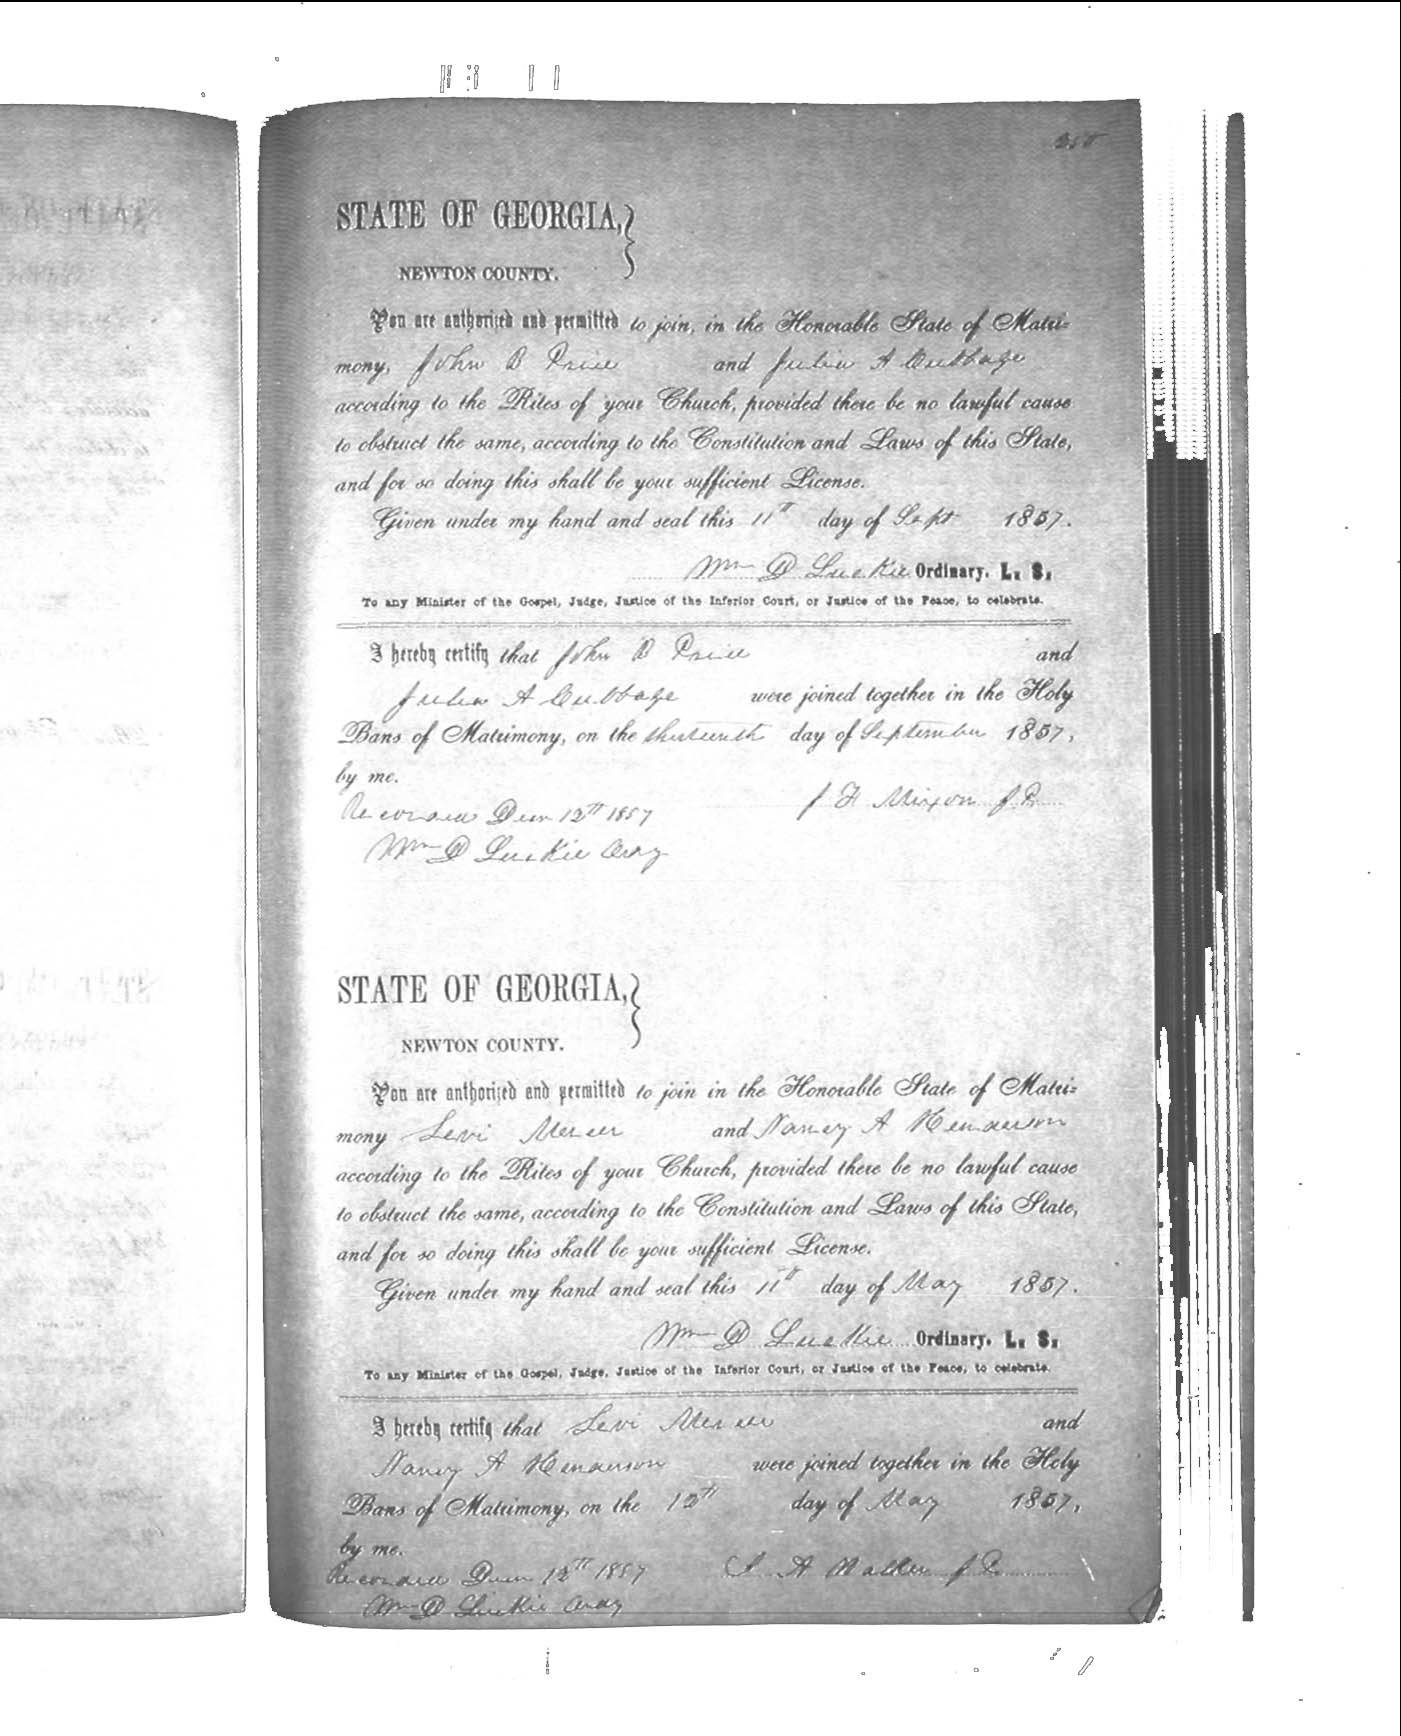 STATE OF GEORGIA,
NEWTON COUNTY.
You are authorized and permitted to join, in the Honorable State of Matri-
mony, John B Price and Julia A Cubbage
according to the Rites of your Church, provided there be no lawful cause
to obstruct the same, according to the Constitution and Laws of this State,
and for so doing this shall be your sufficient License.
Given under my hand and seal this 11th day of Sept 1857.
Wm D Luckie Ordinary. L. S.
To any Minister of the Gospel, Judge, Justice of the Inferior Court, or Justice of the Peace, to celebrate.
I hereby certify that John B Price and
Julia A Cubbage were joined together in the Holy
Bans of Matrimony, on the thirteenth day of September 1857,
by me.
J F Mixon J P
Recorded Decm 12th 1857
Wm D Luckie Ordy
STATE OF GEORGIA,
NEWTON COUNTY.
You are authorized and permitted to join in the Honorable State of Matri-
mony Levi Mercer and Nancy A Henderson
according to the Rites of your Church, provided there be no lawful cause
to obstruct the same, according to the Constitution and Laws of this State,
and for so doing this shall be your sufficient License.
Given under my hand and seal this 11th day of May 1857.
Wm D Luckie Ordinary. L. S.
To any Minister of the Gospel, Judge, Justice of the Inferior Court, or Justice of the Peace, to celebrate.
I hereby certify that Levi Mercer and
Nancy A Henderson were joined together in the Holy
Bans of Matrimony, on the 12th day of May 1857,
by me.
Recorded Decm 12th 1857 A Walker J P
Wm D Luckie Ordy